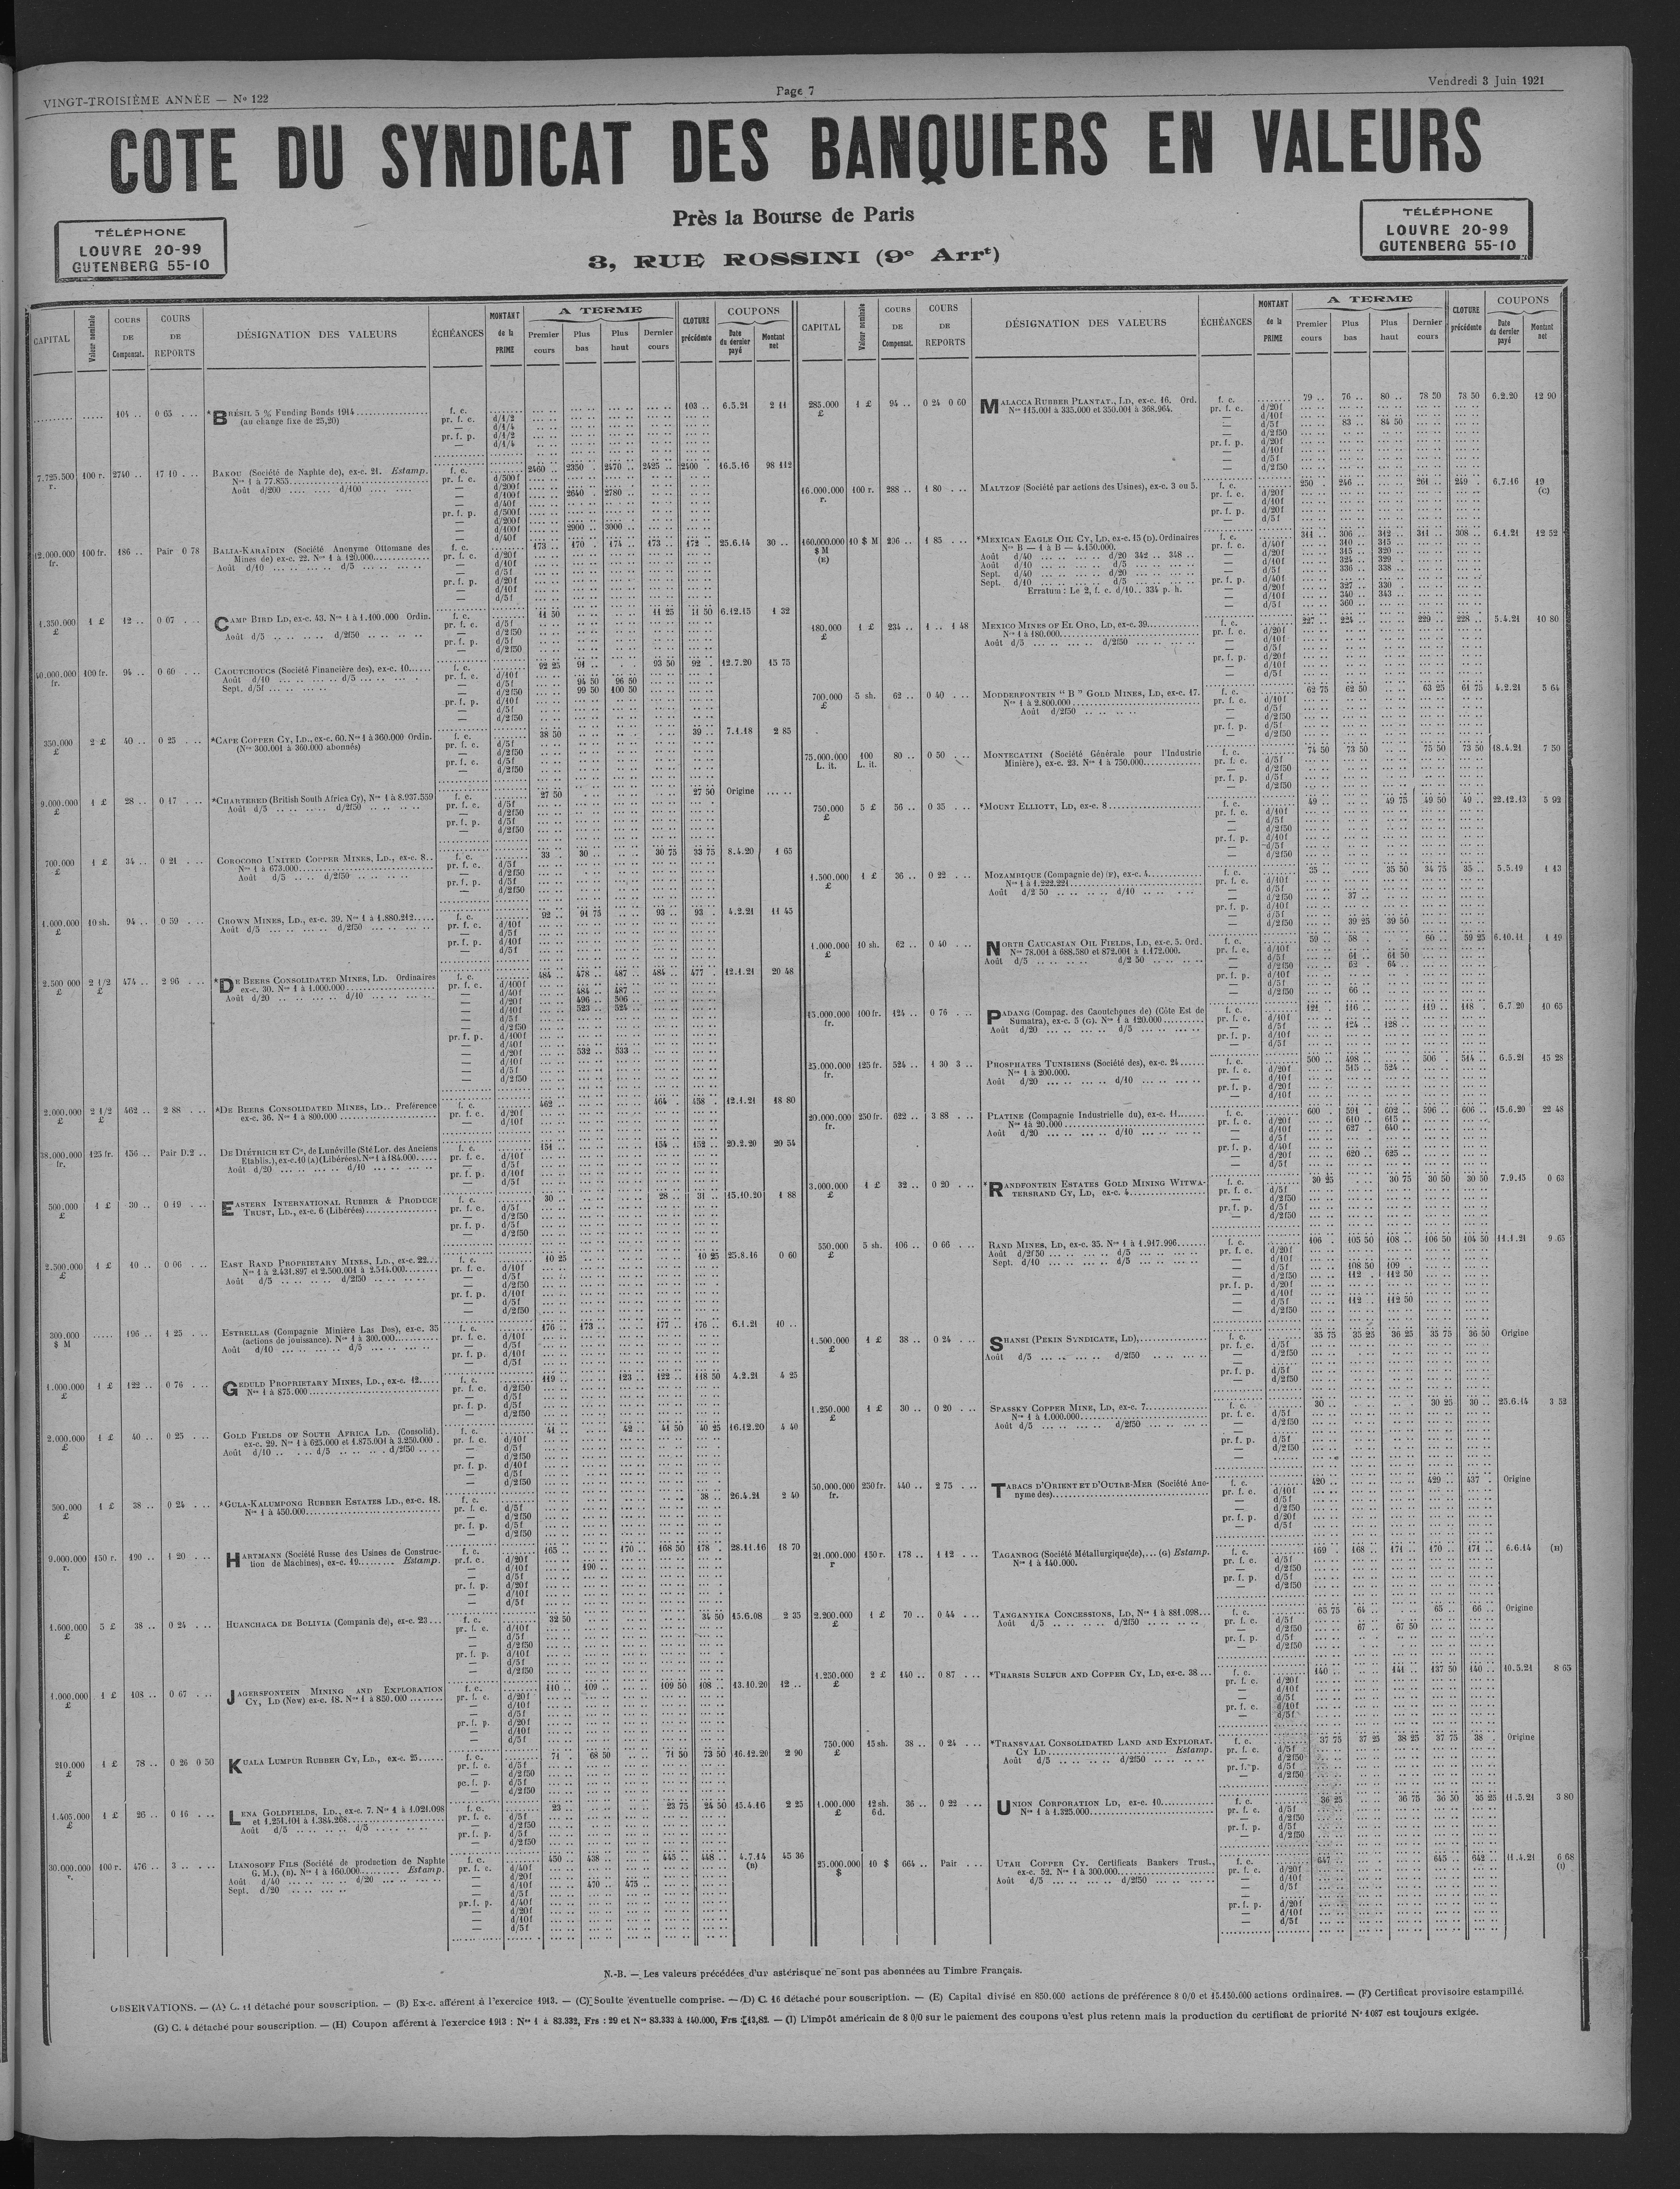 VINGT-TROISIÈME ANNÉE — No 122
Page 7
Vendredi 3 Juin 1921
COTE DU SYNDICAT DES BANQUIERS EN VALEURS
Près la Bourse de Paris
3, RUE ROSSINI (9e Arrt)
TÉLÉPHONE
LOUVRE 20-99
GUTENBERG 55-10
TÉLÉPHONE
LOUVRE 20-99
GUTENBERG 55-10
CAPITAL
Valeur nominale
COURS DE Compensat.
COURS DE REPORTS
DÉSIGNATION DES VALEURS
ÉCHÉANCES
MONTANT de la PRIME
A TERME
Premier cours
Plus bas
Plus haut
Dernier cours
CLOTURE précédente
COUPONS
Date du dernier payé
Montant net
104 .. 0 65 *BRÉSIL 5 % Funding Bonds 1914 f. c. 103 .. 6.5.21 2 11
(au change fixe de 25,20)
7.725.500 r. 100 r. 2740 .. 17 10 BAKOU (Société de Naphte de), ex-c. 21. Estamp. f. c. 2460 .. 2350 . 2470 .. 2425 .. 2400 . 16.5.16 98 112
Nos 1 à 77.855
Août d/200 .... d/100
2640 . 2780 ..
2900 .. 3000 ..
12.000.000 fr. 100 fr. 186 .. Pair 0 78 BALIA-KARAÏDIN (Société Anonyme Ottomane des f. c. 173 .. 170 .. 174 .. 173 .. 172 .. 25.6.14 30 ..
Mines de) ex-c. 22. Nos 1 à 120.000
Août d/10 .... d/5
1.350.000 £ 1 £ 12 .. 0 07 CAMP BIRD LD, ex-c. 43. Nos 1 à 1.400.000 Ordin. f. c. 11 50 11 25 11 50 6.12.15 1 32
Août d/5 .... d/2f50
40.000.000 fr. 100 fr. 94 .. 0 60 CAOUTCHOUCS (Société Financière des), ex-c. 10 f. c. 92 25 91 .. 93 50 92 . 12.7.20 15 75
Août d/10 .... d/5
Sept. d/5f
94 50 96 50
99 50 100 50
350.000 £ 2 £ 40 .. 0 25 *CAPE COPPER CY, LD., ex-c. 60. Nos 1 à 360.000 Ordin. f. c. 38 50 39 .. 7.1.18 2 85
(Nos 300.001 à 360.000 abonnés)
9.000.000 £ 1 £ 28 .. 0 17 *CHARTERED (British South Africa Cy), Nos 1 à 8.937.559 f. c. 27 50 27 50 Origine
Août d/5 .... d/2f50
700.000 £ 1 £ 34 .. 0 21 COROCORO UNITED COPPER MINES, LD., ex-c. 8 f. c. 33 .. 30 .. 30 75 33 75 8.4.20 1 65
Nos 1 à 673.000
Août d/5 .... d/2f50
1.000.000 £ 10 sh. 94 .. 0 59 CROWN MINES, LD., ex-c. 39. Nos 1 à 1.880.212 f. c. 92 .. 91 75 93 .. 93 . 4.2.21 11 45
Août d/5 .... d/2f50
2.500 000 £ 2 1/2 £ 474 .. 2 96 *DE BEERS CONSOLIDATED MINES, LD. Ordinaires f. c. 484 .. 478 .. 487 .. 484 .. 477 .. 12.1.21 20 48
ex-c. 30. Nos 1 à 1.000.000
Août d/20 .... d/10
484 .. 487 ..
496 .. 506 ..
523 .. 524 ..
532 .. 533 ..
2.000.000 £ 2 1/2 £ 462 .. 2 88 *DE BEERS CONSOLIDATED MINES, LD.. Preférence f. c. 462 .. 464 .. 458 .. 12.1.21 18 80
ex-c. 36. Nos 1 à 800.000
38.000.000 fr. 125 fr. 156 .. Pair D.2 DE DIÉTRICH ET Cie, de Lunéville (Sté Lor. des Anciens f. c. 154 .. 154 .. 152 .. 20.2.20 20 54
Etablis.), ex-c. 10 (A) (Libérées). Nos 1 à 184.000
Août d/20 .... d/10
500.000 £ 1 £ 30 .. 0 19 EASTERN INTERNATIONAL RUBBER & PRODUCE f. c. 30 .. 28 .. 31 .. 15.10.20 1 88
TRUST, LD., ex-c. 6 (Libérées)
2.500.000 £ 1 £ 10 .. 0 06 EAST RAND PROPRIETARY MINES, LD., ex-c. 22 f. c. 10 25 10 25 25.8.16 0 60
Nos 1 à 2.431.897 et 2.500.001 à 2.514.000
Août d/5 .... d/2f50
300.000 $ M 196 .. 1 25 ESTRELLAS (Compagnie Minière Las Dos), ex-c. 35 f. c. 176 .. 173 .. 177 .. 176 .. 6.1.21 10 ..
(actions de jouissance). Nos 1 à 300.000
Août d/10 .... d/5
1.000.000 £ 1 £ 122 .. 0 76 GEDULD PROPRIETARY MINES, LD., ex-c. 12 f. c. 119 .. 123 .. 122 .. 118 50 4.2.21 4 25
Nos 1 à 875.000
2.000.000 £ 1 £ 40 .. 0 25 GOLD FIELDS OF SOUTH AFRICA LD. (Consolid). f. c. 41 .. 42 .. 41 50 40 25 16.12.20 4 40
ex-c. 29. Nos 1 à 625.000 et 1.875.001 à 3.250.000
Août d/10 .. d/5 .... d/2f50
500.000 £ 1 £ 38 .. 0 24 *GULA-KALUMPONG RUBBER ESTATES LD., ex-c. 18. f. c. 38 .. 26.4.21 2 40
Nos 1 à 450.000
9.000.000 r. 150 r. 190 .. 1 20 HARTMANN (Société Russe des Usines de Construc- f. c. 165 .. 170 .. 168 50 178 . 28.11.16 18 70
tion de Machines), ex-c. 19 Estamp.
190 ..
1.600.000 £ 5 £ 38 .. 0 24 HUANCHACA DE BOLIVIA (Compania de), ex-c. 23 f. c. 32 50 34 50 15.6.08 2 35
1.000.000 £ 1 £ 108 .. 0 67 JAGERSFONTEIN MINING AND EXPLORATION f. c. 110 .. 109 .. 109 50 108 .. 13.10.20 12 ..
CY, LD (New) ex-c. 18. Nos 1 à 850.000
210.000 £ 1 £ 78 .. 0 26 0 50 KUALA LUMPUR RUBBER CY, LD., ex-c. 25 f. c. 71 . 68 50 71 50 73 50 16.12.20 2 90
1.405.000 £ 1 £ 26 .. 0 16 LENA GOLDFIELDS, LD., ex-c. 7. Nos 1 à 1.021.098 f. c. 23 .. 23 75 24 50 15.4.16 2 25
et 1.251.101 à 1.384.268
Août d/5 .... d/5
30.000.000 100 r. 476 .. 3 .. LIANOSOFF FILS (Société de production de Naphte f. c. 450 .. 438 .. 445 .. 448 .. 4.7.14 (B) 45 36
G. M.), (B). Nos 1 à 160.000 Estamp.
Août d/40 .... d/20
Sept. d/20
470 .. 475 ..
CAPITAL
Valeur nominale
COURS DE Compensat.
COURS DE REPORTS
DÉSIGNATION DES VALEURS
ÉCHÉANCES
MONTANT de la PRIME
A TERME
Premier cours
Plus bas
Plus haut
Dernier cours
CLOTURE précédente
COUPONS
Date du dernier payé
Montant net
285.000 £ 1 £ 94 .. 0 24 0 60 MALACCA RUBBER PLANTAT., LD, ex-c. 16. Ord. f. c. 79 .. 76 .. 80 .. 78 50 78 50 6.2.20 12 90
Nos 115.001 à 335.000 et 350.001 à 368.964.
83 .. 84 50
16.000.000 r. 100 r. 288 .. 1 80 MALTZOF (Société par actions des Usines), ex-c. 3 ou 5. f. c. 250 . 246 .. 261 .. 249 . 6.7.16 19 (C)
160.000.000 $ M (E) 10 $ M 296 .. 1 85 *MEXICAN EAGLE OIL CY, LD, ex-c. 15 (D). Ordinaires f. c. 311 .. 306 .. 312 .. 311 .. 308 .. 6.1.21 12 52
Nos B — 1 à B — 4.150.000.
Août d/40 .... d/20 342 .. 348 ..
Août d/10 .... d/5
Sept. d/40 .... d/20
Sept. d/10 .... d/5
Erratum : Le 2, f. c. d/10.. 334 p. h.
310 .. 315 ..
315 .. 320 ..
324 .. 329 .
336 .. 338 ..
327 .. 330
340 .. 343 ..
360 ..
180.000 £ 1 £ 234 .. 1 .. 1 48 MEXICO MINES OF EL ORO, LD, ex-c. 39 f. c. 227 .. 224 .. 229 .. 228 .. 5.4.21 10 80
Nos 1 à 180.000
Août d/5 .... d/2f50
700.000 £ 5 sh. 62 .. 0 40 MODDERFONTEIN “ B ” GOLD MINES, LD, ex-c. 17. f. c. 62 75 62 50 63 25 61 75 4.2.21 5 64
Nos 1 à 2.800.000
Août d/2f50
75.000.000 L. it. 100 L. it. 80 .. 0 50 MONTECATINI (Société Générale pour l'Industrie f. c. 74 50 73 50 75 50 73 50 18.4.21 7 50
Minière), ex-c. 23. Nos 1 à 750.000
750.000 £ 5 £ 56 .. 0 35 *MOUNT ELLIOTT, LD, ex-c. 8 f. c. 49 .. 49 75 49 50 49 .. 22.12.13 5 92
1.500.000 £ 1 £ 36 .. 0 22 MOZAMBIQUE (Compagnie de) (F), ex-c. 4 f. c. 35 .. 35 50 34 75 35 .. 5.5.19 1 13
Nos 1 à 1.222.221
Août d/2 50 .... d/10
37 ..
39 25 39 50
1.000.000 £ 10 sh. 62 .. 0 40 NORTH CAUCASIAN OIL FIELDS, LD, ex-c. 5. Ord. f. c. 59 .. 58 .. 60 .. 59 25 6.10.11 1 19
Nos 78.001 à 688.580 et 872.001 à 1.172.000.
Août d/5 .... d/2 50
61 .. 61 50
62 . 64 ..
66 ..
15.000.000 fr. 100 fr. 124 .. 0 76 PADANG (Compag. des Caoutchoucs de) (Côte Est de f. c. 121 .. 116 .. 119 .. 118 . 6.7 20 10 65
Sumatra), ex-c. 5 (G). Nos 1 à 120.000
Août d/20 .... d/5
124 .. 128 ..
25.000.000 fr. 125 fr. 524 .. 1 30 3 .. PHOSPHATES TUNISIENS (Société des), ex-c. 24 f. c. 500 .. 498 .. 506 .. 514 .. 6.5.21 15 28
Nos 1 à 200.000.
Août d/20 .... d/10
515 .. 524 ..
20.000.000 fr. 250 fr. 622 .. 3 88 PLATINE (Compagnie Industrielle du), ex-c. 11 f. c. 600 . 591 . 602 .. 596 .. 606 .. 15.6.20 22 48
Nos 1 à 20.000
Août d/20 .... d/10
610 .. 615 ..
627 .. 640 ..
620 .. 625 ..
3.000.000 £ 1 £ 32 .. 0 20 *RANDFONTEIN ESTATES GOLD MINING WITWA- f. c. 30 25 30 75 30 50 30 50 7.9.15 0 63
TERSRAND CY, LD, ex-c. 4
550.000 £ 5 sh. 106 .. 0 66 RAND MINES, LD, ex-c. 35. Nos 1 à 1.917.996 f. c. 106 .. 105 50 108 .. 106 50 104 50 11.1.21 9 65
Août d/2f50 .... d/5
Sept. d/10 .... d/5
108 50 109 ..
112 . 112 50
112 .. 112 50
1.500.000 £ 1 £ 38 .. 0 24 SHANSI (PEKIN SYNDICATE, LD), f. c. 35 75 35 25 36 25 35 75 36 50 Origine
Août d/5 .... d/2f50
1.250.000 £ 1 £ 30 .. 0 20 SPASSKY COPPER MINE, LD, ex-c. 7 f. c. 30 .. 30 25 30 .. 25.6.14 3 52
Nos 1 à 1.000.000
Août d/5 .... d/2f50
50.000.000 fr. 250 fr. 440 .. 2 75 TABACS D'ORIENT ET D'OUTRE-MER (Société Ano- f. c. 420 .. 429 .. 437 .. Origine
nyme des)
21.000.000 r 150 r. 178 .. 1 12 TAGANROG (Société Métallurgique de), (G) Estamp. f. c. 169 .. 168 .. 171 .. 170 .. 171 .. 6.6.14 (H)
Nos 1 à 140.000.
2.200.000 £ 1 £ 70 .. 0 44 TANGANYIKA CONCESSIONS, LD, Nos 1 à 881.098 f. c. 65 75 64 .. 65 .. 66 .. Origine
Août d/5 .... d/2f50
67 .. 67 50
1.250.000 £ 2 £ 140 .. 0 87 *THARSIS SULFUR AND COPPER CY, LD, ex-c. 38 f. c. 140 .. 141 .. 137 50 140 .. 10.5.21 8 65
750.000 £ 15 sh. 38 .. 0 24 *TRANSVAAL CONSOLIDATED LAND AND EXPLORAT. f. c. 37 75 37 25 38 25 37 75 38 . Origine
CY LD Estamp.
Août d/5 .... d/2f50
1.000.000 £ 12 sh. 6d. 36 .. 0 22 UNION CORPORATION LD, ex-c. 10 f. c. 36 25 36 75 36 50 35 25 11.5.21 3 80
Nos 1 à 1.325.000
25.000.000 $ 10 $ 664 .. Pair UTAH COPPER CY. Certificats Bankers Trust., f. c. 647 .. 645 .. 642 .. 11.4.21 6 68 (I)
ex-c. 52. Nos 1 à 300.000
Août d/5 .... d/2f50
N.-B. — Les valeurs précédées d'un astérisque ne sont pas abonnées au Timbre Français.
OBSERVATIONS. — (A) C. 11 détaché pour souscription. — (B) Ex-c. afférent à l'exercice 1913. — (C) Soulte éventuelle comprise. — (D) C. 16 détaché pour souscription. — (E) Capital divisé en 850.000 actions de préférence 8 0/0 et 15.150.000 actions ordinaires. — (F) Certificat provisoire estampillé.
(G) C. 4 détaché pour souscription. — (H) Coupon afférent à l'exercice 1913 : Nos 1 à 83.332, Frs : 29 et Nos 83.333 à 140.000, Frs : 13,82. — (I) L'impôt américain de 8 0/0 sur le paiement des coupons n'est plus retenu mais la production du certificat de priorité No 1087 est toujours exigée.